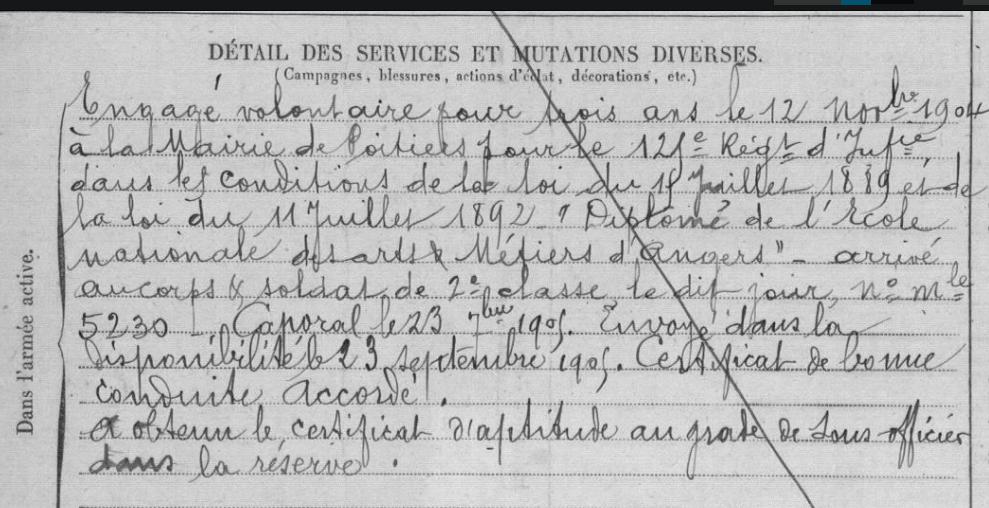 DÉTAIL DES SERVICES ET MUTATIONS DIVERSES.
(Campagnes, blessures, actions d'éclat, décorations, etc.)
Engagé volontaire pour trois ans le 12 Novbre 1904
à la Mairie de Poitiers pour le 125e Régt d'Infie
dans les conditions de la loi du 15 Juillet 1889 et de
la loi du 11 Juillet 1892 " Diplomé de l'Ecole
nationale des arts & Métiers d'Angers" - arrivé
au corps & soldat de 2e classe le dit jour, No mle
5230 - Caporal le 23 7bre 1905. Envoyé dans la
disponibilité le 23 septembre 1905. Certificat de bonne
conduite Accordé.
A obtenu le certificat d'aptitude au grade de Sous-officier
dans la réserve.
Dans l'armée active.